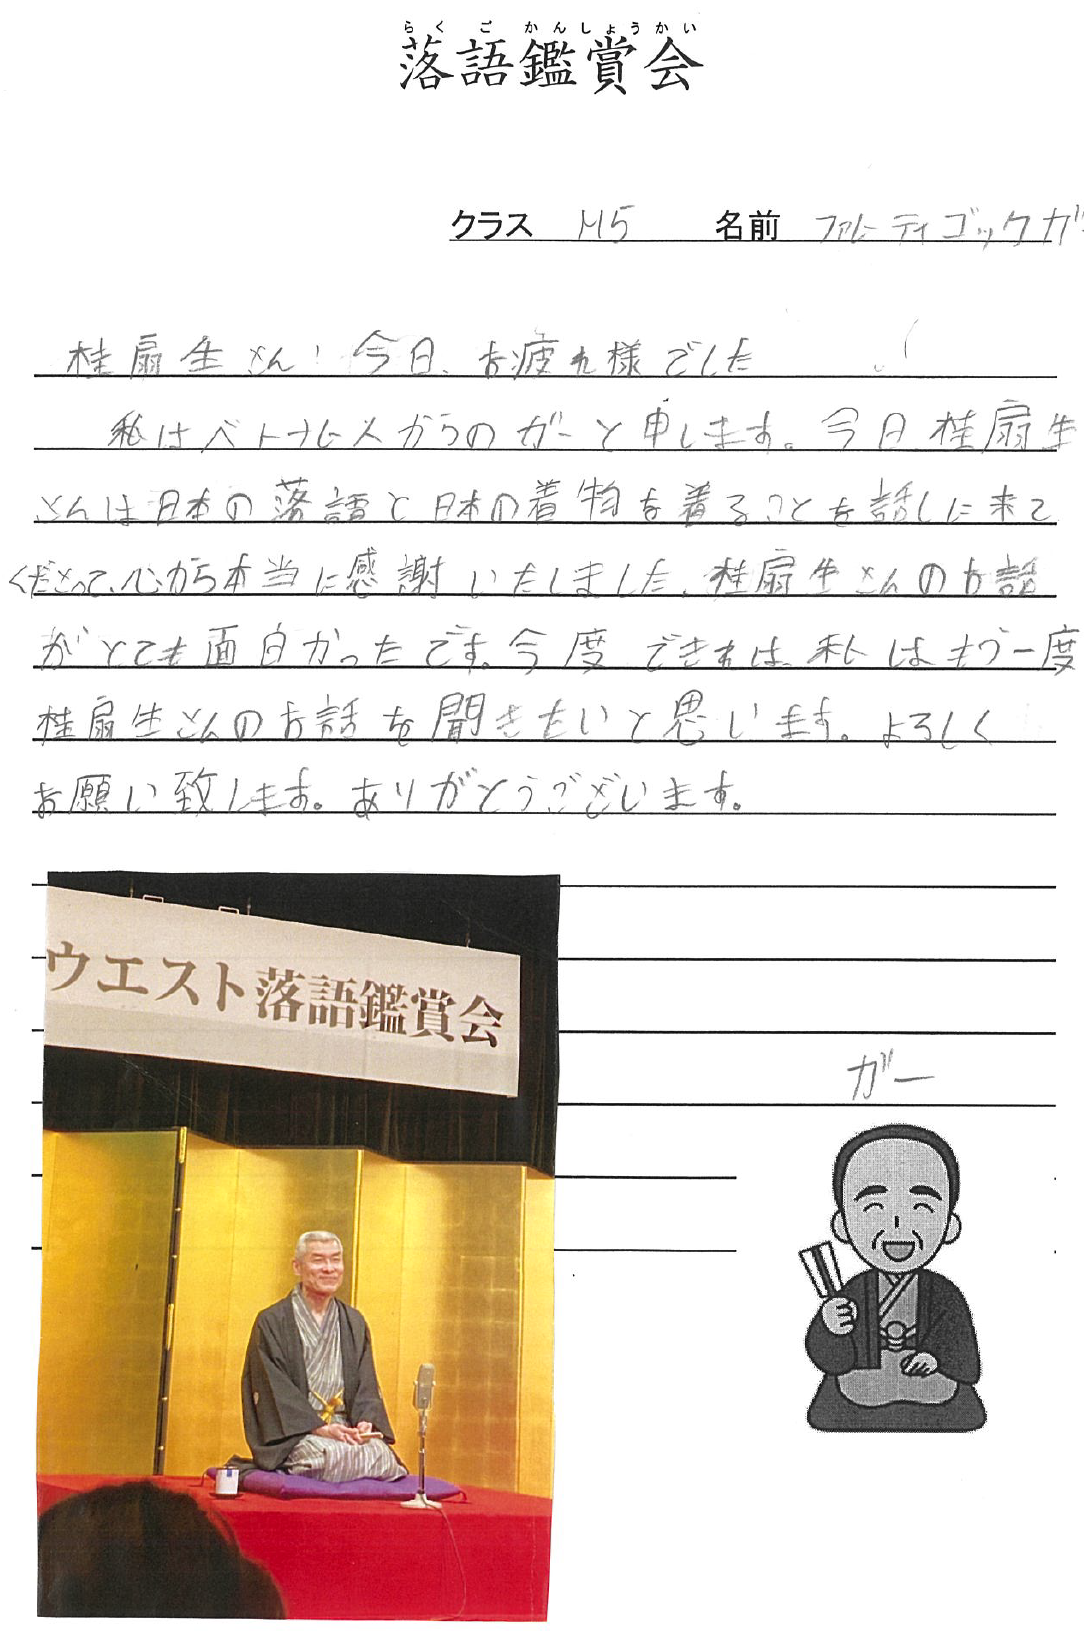 らくごかんしょうかい
落語鑑賞会
クラス M5 名前 ファム ティ ゴック ガー
桂扇生さん! 今日、お疲れ様でした
私はベトナム人からのガーと申します。今日桂扇生
さんは日本の落語と日本の着物を着ることを話しに来て
くださって、心から本当に感謝いたしました。桂扇生さんのお話
がとても面白かったです。今度できれば、私はもう一度
桂扇生さんのお話を聞きたいと思います。よろしく
お願い致します。ありがとうございます。
ウエスト落語鑑賞会
ガー